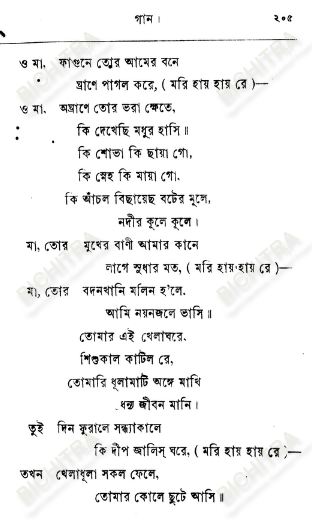 গান।
২০৫
ও মা, ফাগুনে তোর আমের বনে
ঘ্রাণে পাগল করে, ( মরি হায় হায় রে )—
ও মা, অঘ্রাণে তোর ভরা ক্ষেতে,
কি দেখেছি মধুর হাসি॥
কি শোভা কি ছায়া গো,
কি স্নেহ কি মায়া গো,
কি আঁচল বিছায়েছ বটের মূলে,
নদীর কূলে কূলে।
মা, তোর মুখের বাণী আমার কানে
লাগে সুধার মত, ( মরি হায় হায় রে )—
মা, তোর বদনখানি মলিন হ'লে,
আমি নয়নজলে ভাসি॥
তোমার এই খেলাঘরে,
শিশুকাল কাটিল রে,
তোমারি ধূলামাটি অঙ্গে মাখি
ধন্য জীবন মানি।
তুই দিন ফুরালে সন্ধ্যাকালে
কি দীপ জালিস্ ঘরে, ( মরি হায় হায় রে )—
তখন খেলাধূলা সকল ফেলে,
তোমার কোলে ছুটে আসি॥
BICHITRA